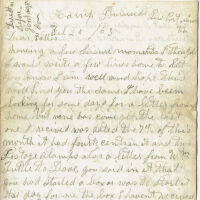 Camp
Feb 2 63
Dear Father
having a few leisure moments I thought
I would write a few lines home to let
you know I am well and hope this
will find you the same I have been
looking for some days for a letter from
home but none has come yet the last
one I received was dated the 2nd of this
month it had fourty cents in it and two
Postage stamps also a letter from
you said in it that
you had started a box or was to start it
that day for me the box I haven't received